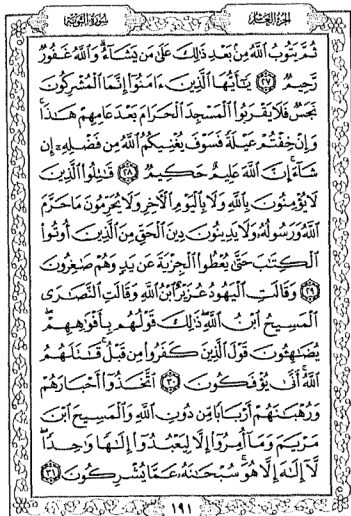 الجزء العاشر
سورة التوبة
ثُمَّ يَتُوبُ اللَّهُ مِنۢ بَعْدِ ذَٰلِكَ عَلَىٰ مَن يَشَآءُ ۗ وَاللَّهُ غَفُورٌ
رَّحِيمٌ ٢٧ يَٰٓأَيُّهَا الَّذِينَ ءَامَنُوٓا۟ إِنَّمَا الْمُشْرِكُونَ
نَجَسٌ فَلَا يَقْرَبُوا۟ الْمَسْجِدَ الْحَرَامَ بَعْدَ عَامِهِمْ هَٰذَا ۚ
وَإِنْ خِفْتُمْ عَيْلَةً فَسَوْفَ يُغْنِيكُمُ اللَّهُ مِن فَضْلِهِۦٓ إِن
شَآءَ ۚ إِنَّ اللَّهَ عَلِيمٌ حَكِيمٌ ٢٨ قَٰتِلُوا۟ الَّذِينَ
لَا يُؤْمِنُونَ بِاللَّهِ وَلَا بِالْيَوْمِ الْءَاخِرِ وَلَا يُحَرِّمُونَ مَا حَرَّمَ
اللَّهُ وَرَسُولُهُۥ وَلَا يَدِينُونَ دِينَ الْحَقِّ مِنَ الَّذِينَ أُوتُوا۟
الْكِتَٰبَ حَتَّىٰ يُعْطُوا۟ الْجِزْيَةَ عَن يَدٍ وَهُمْ صَٰغِرُونَ
٢٩ وَقَالَتِ الْيَهُودُ عُزَيْرٌ ابْنُ اللَّهِ وَقَالَتِ النَّصَٰرَى
الْمَسِيحُ ابْنُ اللَّهِ ۖ ذَٰلِكَ قَوْلُهُم بِأَفْوَٰهِهِمْ ۖ
يُضَٰهِـُٔونَ قَوْلَ الَّذِينَ كَفَرُوا۟ مِن قَبْلُ ۚ قَٰتَلَهُمُ
اللَّهُ ۚ أَنَّىٰ يُؤْفَكُونَ ٣٠ اتَّخَذُوٓا۟ أَحْبَارَهُمْ
وَرُهْبَٰنَهُمْ أَرْبَابًا مِّن دُونِ اللَّهِ وَالْمَسِيحَ ابْنَ
مَرْيَمَ وَمَآ أُمِرُوٓا۟ إِلَّا لِيَعْبُدُوٓا۟ إِلَٰهًا وَٰحِدًا ۖ
لَّآ إِلَٰهَ إِلَّا هُوَ ۚ سُبْحَٰنَهُۥ عَمَّا يُشْرِكُونَ ٣١
١٩١